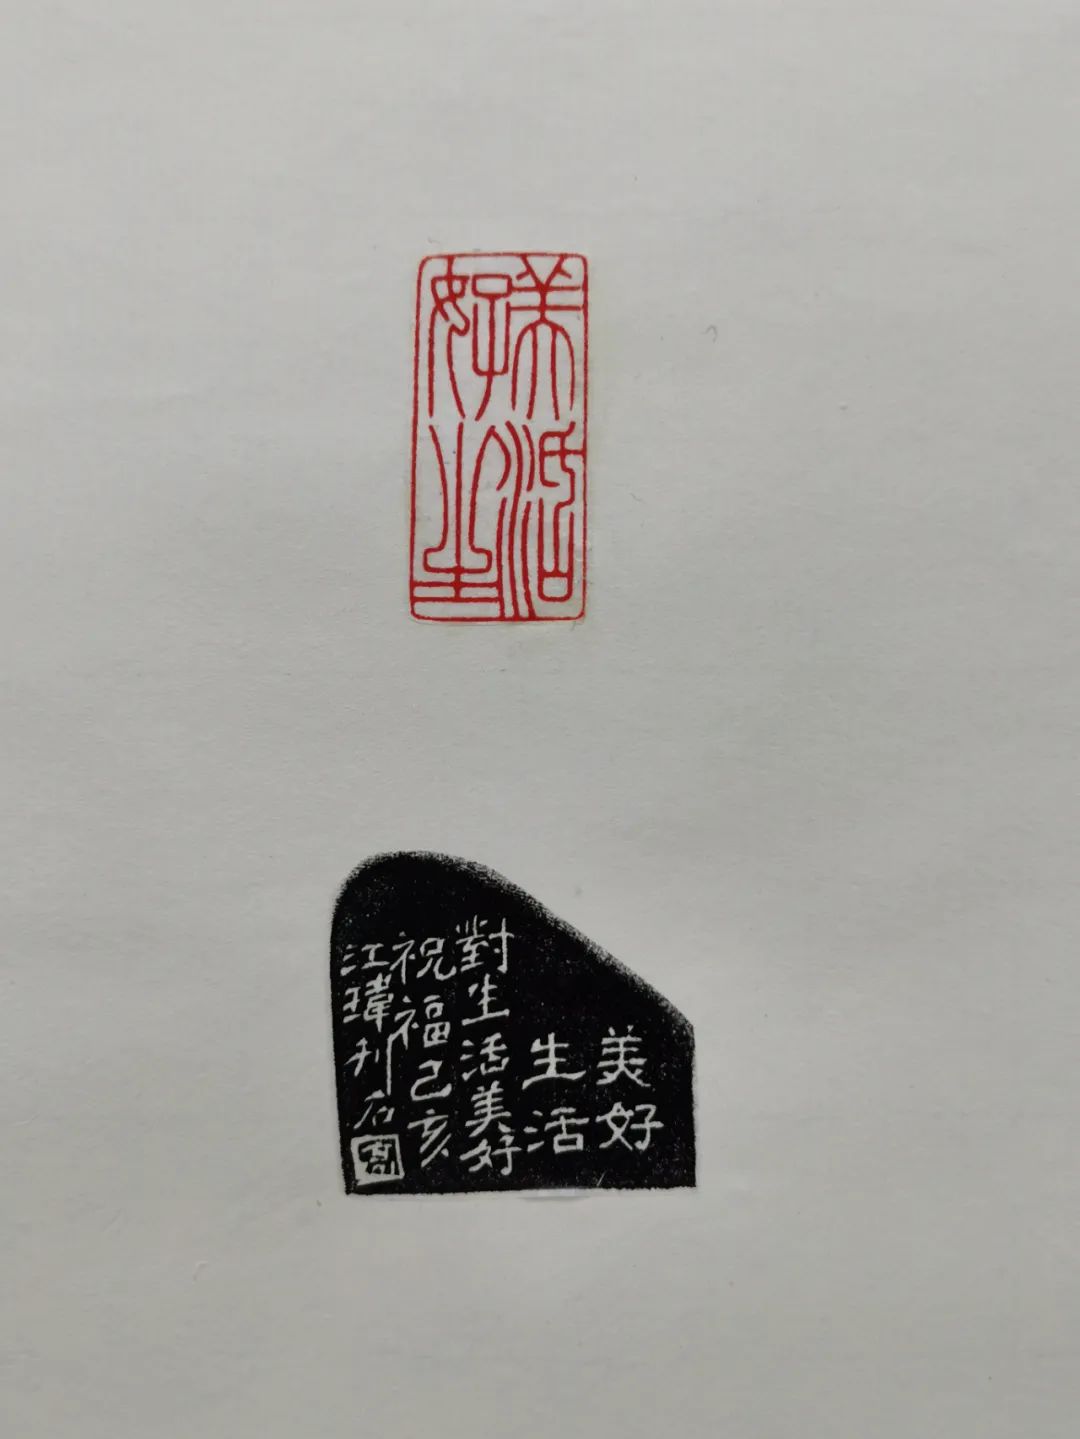 美好生活
美好
生活
對生活美好
祝福己亥
江瑋刊石